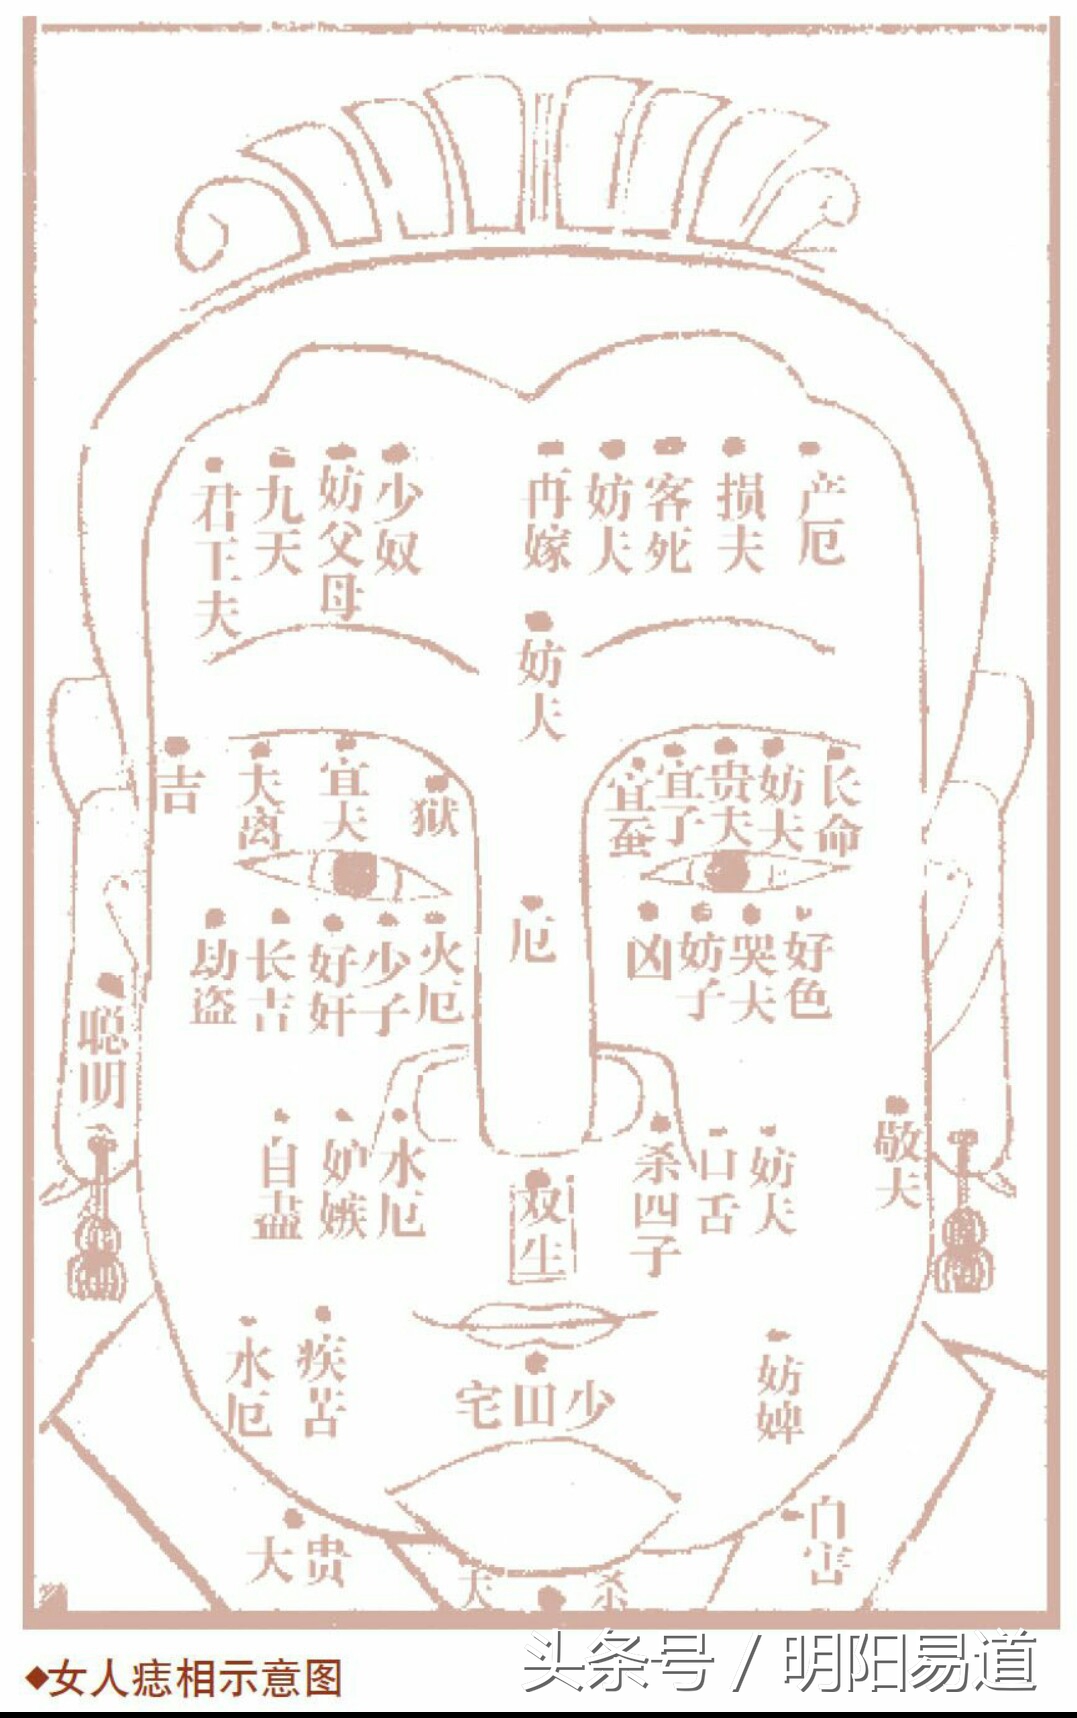 君王夫
九天
妨父母
少奴
再嫁
妨夫
客死
损夫
产厄
妨夫
吉
夫离
宜夫
狱
宜蚕
宜子
贵夫
妨夫
长命
厄
劫盗
长吉
好奸
少子
火厄
凶
妨子
哭夫
好色
聪明
自盡
妒嫉
水厄
双生
杀四子
口舌
妨夫
敬夫
水厄
疾苦
宅田少
妨婢
大贵
自害
夫 杀
◆女人痣相示意图
头条号 / 明阳易道